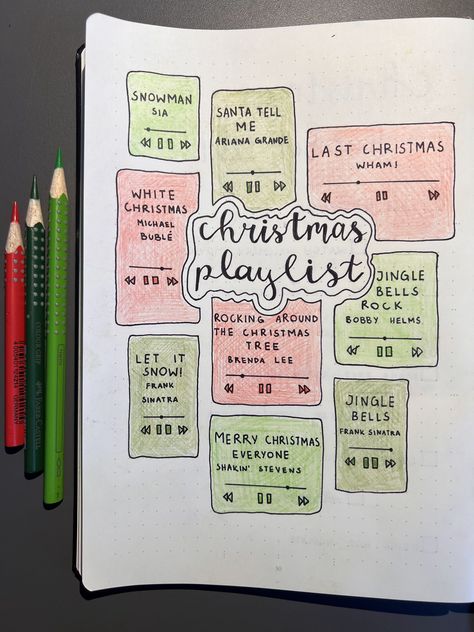 SNOWMAN
SIA
SANTA TELL
ME
ARIANA GRANDE
LAST CHRISTMAS
WHAM!
WHITE
CHRISTMAS
MICHAEL
BUBLÉ
christmas
playlist
JINGLE
BELLS
ROCK
BOBBY HELMS
ROCKING AROUND
THE CHRISTMAS
TREE
BRENDA LEE
LET IT
SNOW!
FRANK
SINATRA
JINGLE
BELLS
FRANK SINATRA
MERRY CHRISTMAS
EVERYONE
SHAKIN' STEVENS